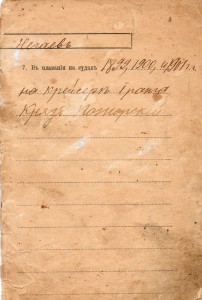 Негаевъ
7. Въ плаваніи на судахъ 1899, 1900, и 1901 г.г.
на крейсерѣ I ранга
Князь Пожарскій